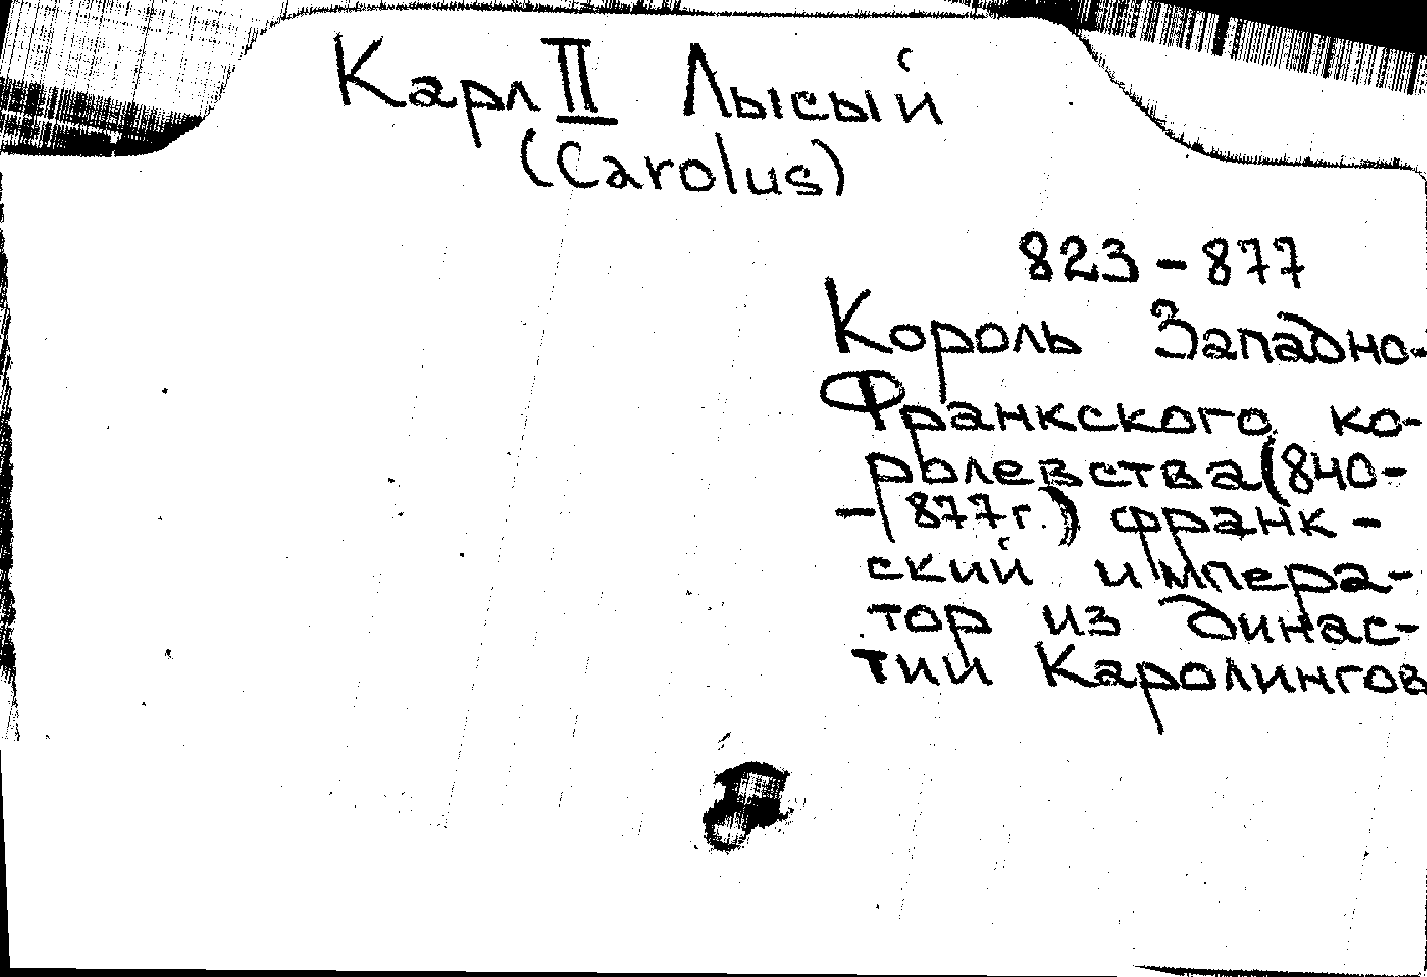 Карл II Лысый
(Carolus)
823-877
Король Западно-
Франкского ко-
ролевства (840-
-877г.) франк-
ский импера-
тор из динас-
тии Каролингов